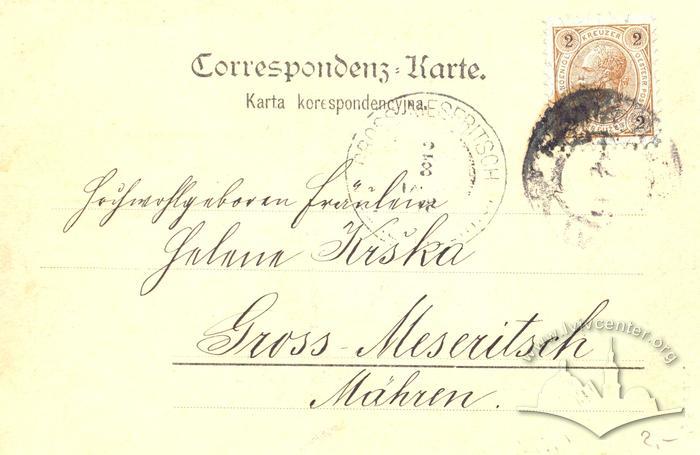 2 KREUZER 2
2
Correspondenz-Karte.
Karta korespondencyjna.
GROSS-MESERITSCH
Hochwohlgeboren Fräulein
Helene Krska
Gross-Meseritsch
Mähren.
www.lvivcenter.org
2,-